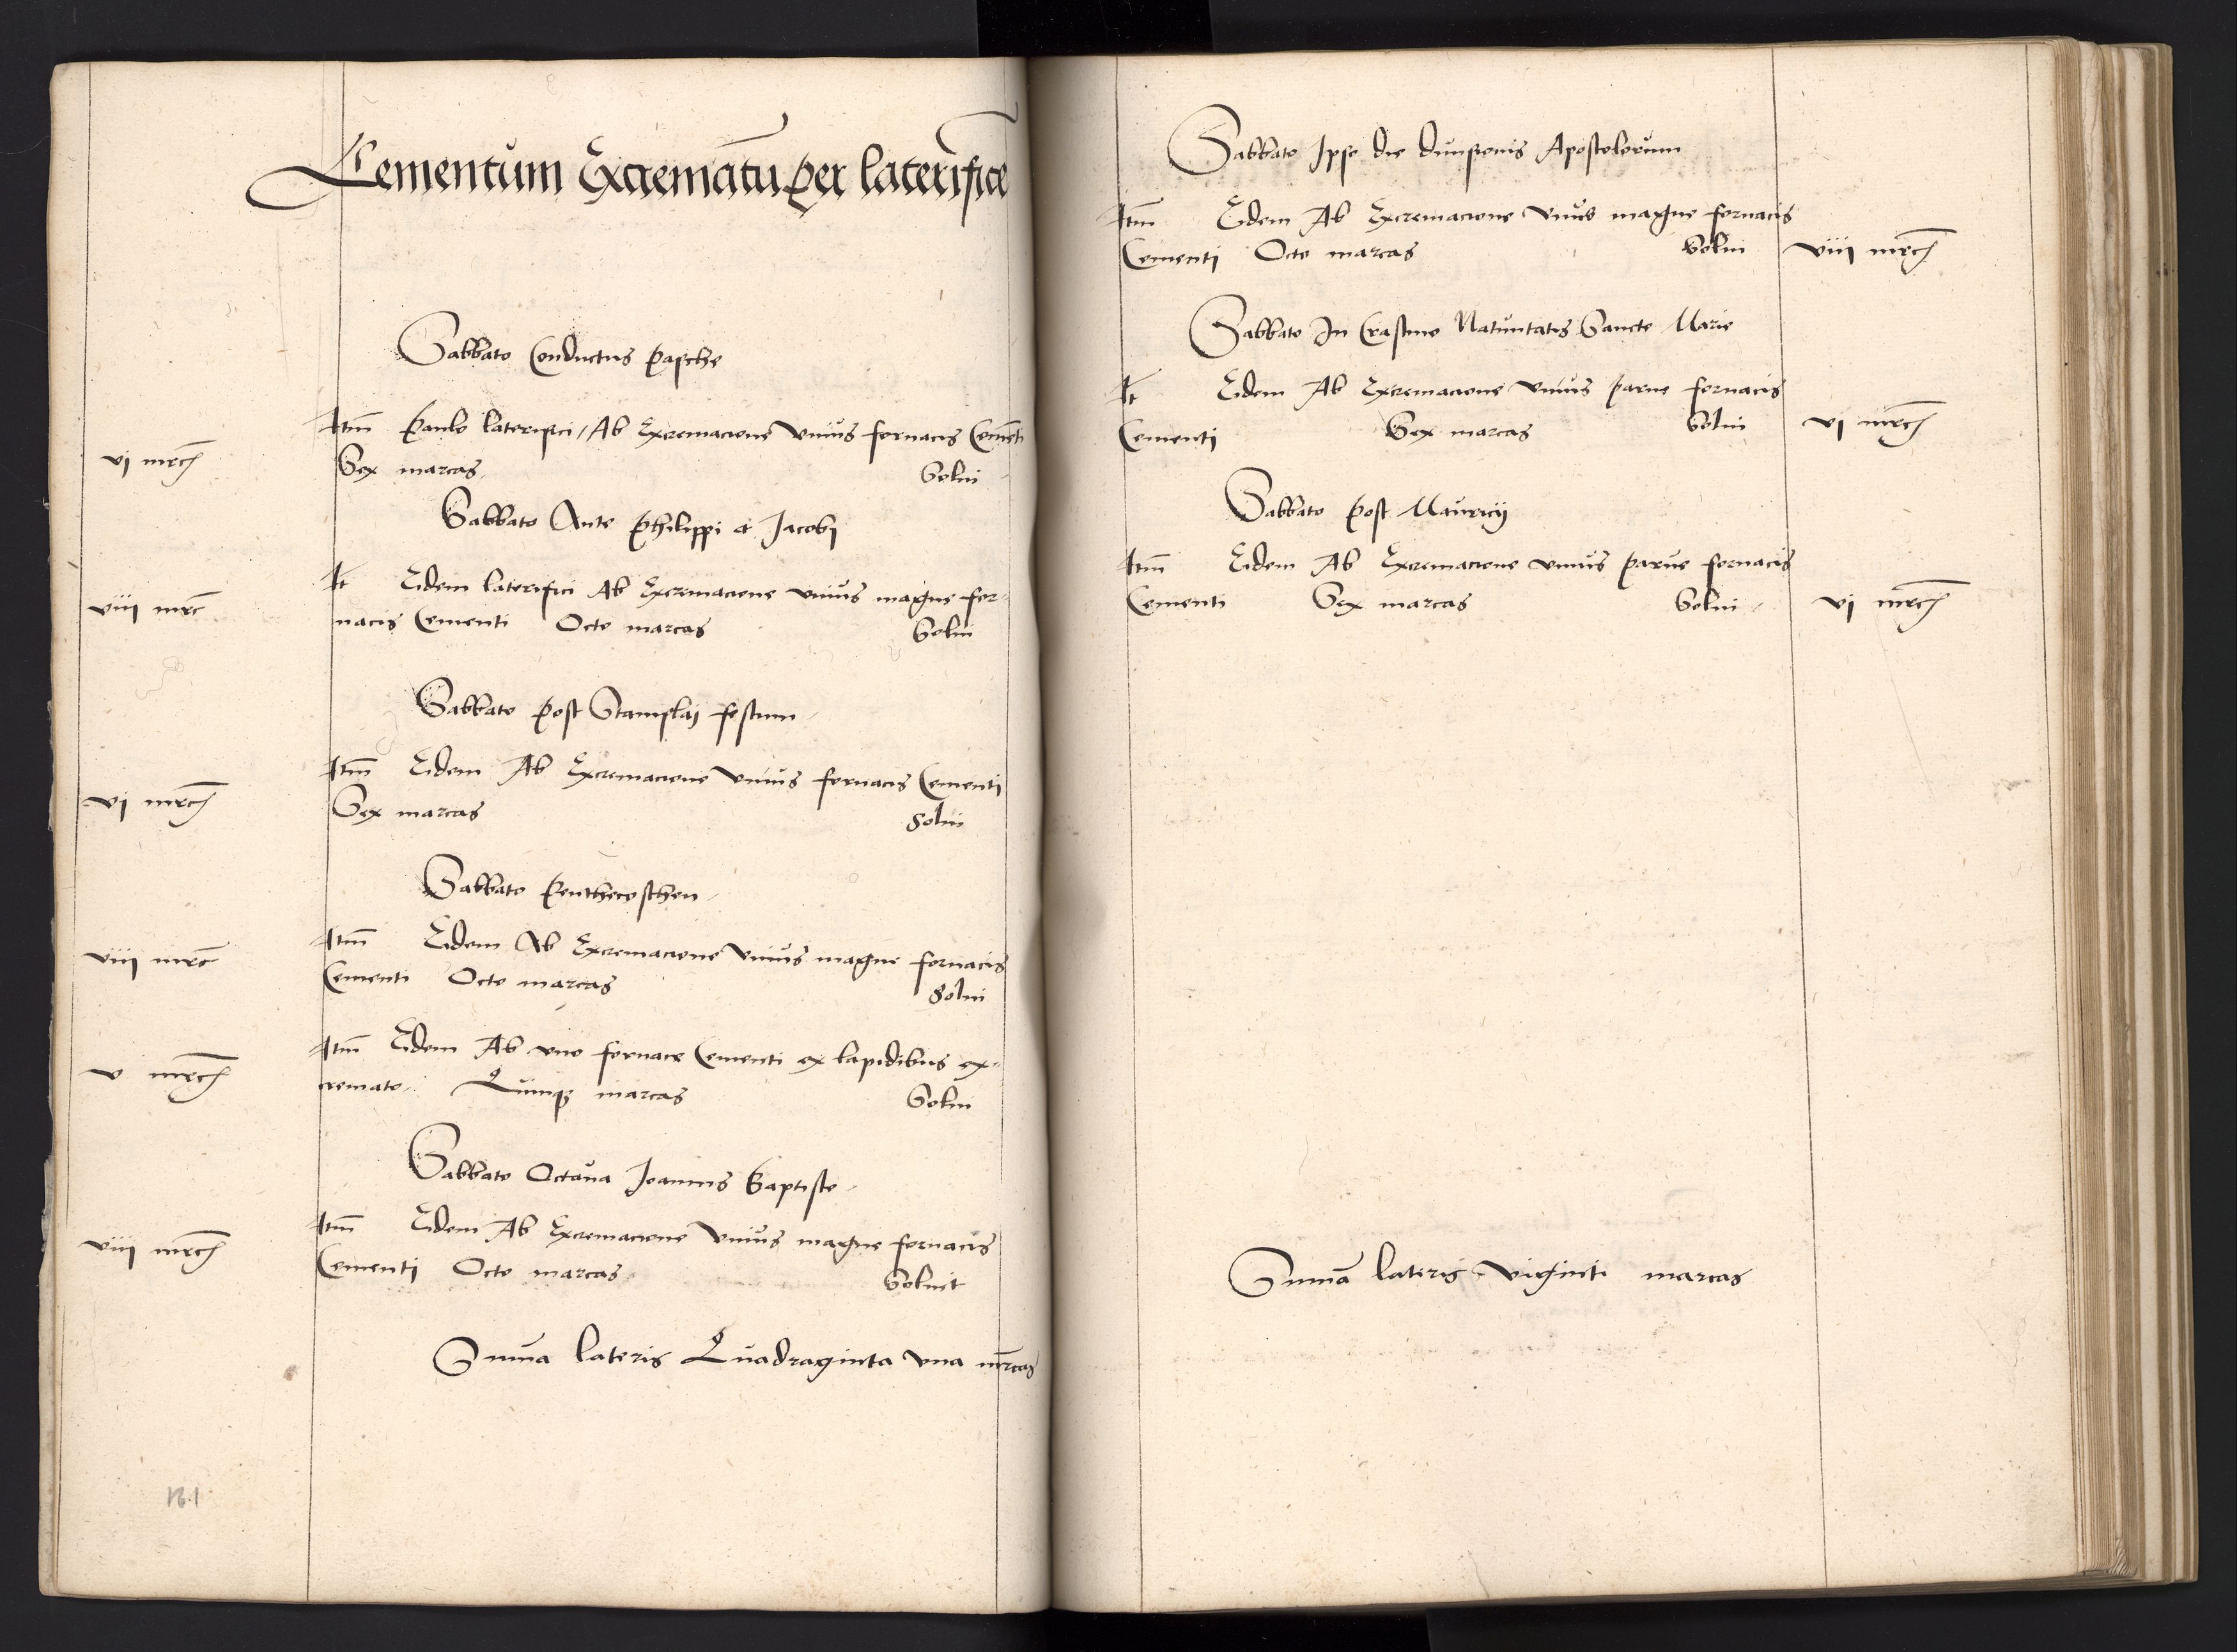 Cementum Excrematū per laterifice
Sabbato Conductus pasche
Itm̄ Paulo laterifici / Ab Excremacione vnius fornacis Cemēti
vj mrc̄
Sex marcas Solui
Sabbato Ante Philippi et Jacobj
It Eidem laterifici Ab Excremacione vnius magne for-
viij mrc̄
nacis Cementi Octo marcas Solui
Sabbato post Stanislaj festum
Itm̄ Eidem Ab Excremacione vnius fornacis Cementi
vj mrc̄
Sex marcas Solui
Sabbato Penthecosthen
Itm̄ Eidem Ab Excremacione vnius magne fornacis
viij mrc̄
Cementi Octo marcas Solui
Itm̄ Eidem Ab vno fornace Cementi ex lapidibus ex-
v mrc̄
cremato Quinqʒ marcas Solui
Sabbato Octaua Joannis Baptiste
Itm̄ Eidem Ab Excremacione vnius magne fornacis
viij mrc̄
Cementi Octo marcas Soluit
Summa lateris Quadraginta vna mrcas
161
Sabbato Ipso die diuisionis Apostolorum
Itm̄ Eidem Ab Excremacione vnius magne fornacis
Cementi Octo marcas Solui viij mrc̄
Sabbato In Crastino Natiuitatis Sancte Marie
It Eidem Ab Excremacione vnius parue fornacis
Cementi Sex marcas Solui vj mrc̄
Sabbato post Mauricij
Itm̄ Eidem Ab Excremacione vnius parue fornacis
Cementi Sex marcas Solui vj mrc̄
Sum̄a lateris viginti marcas